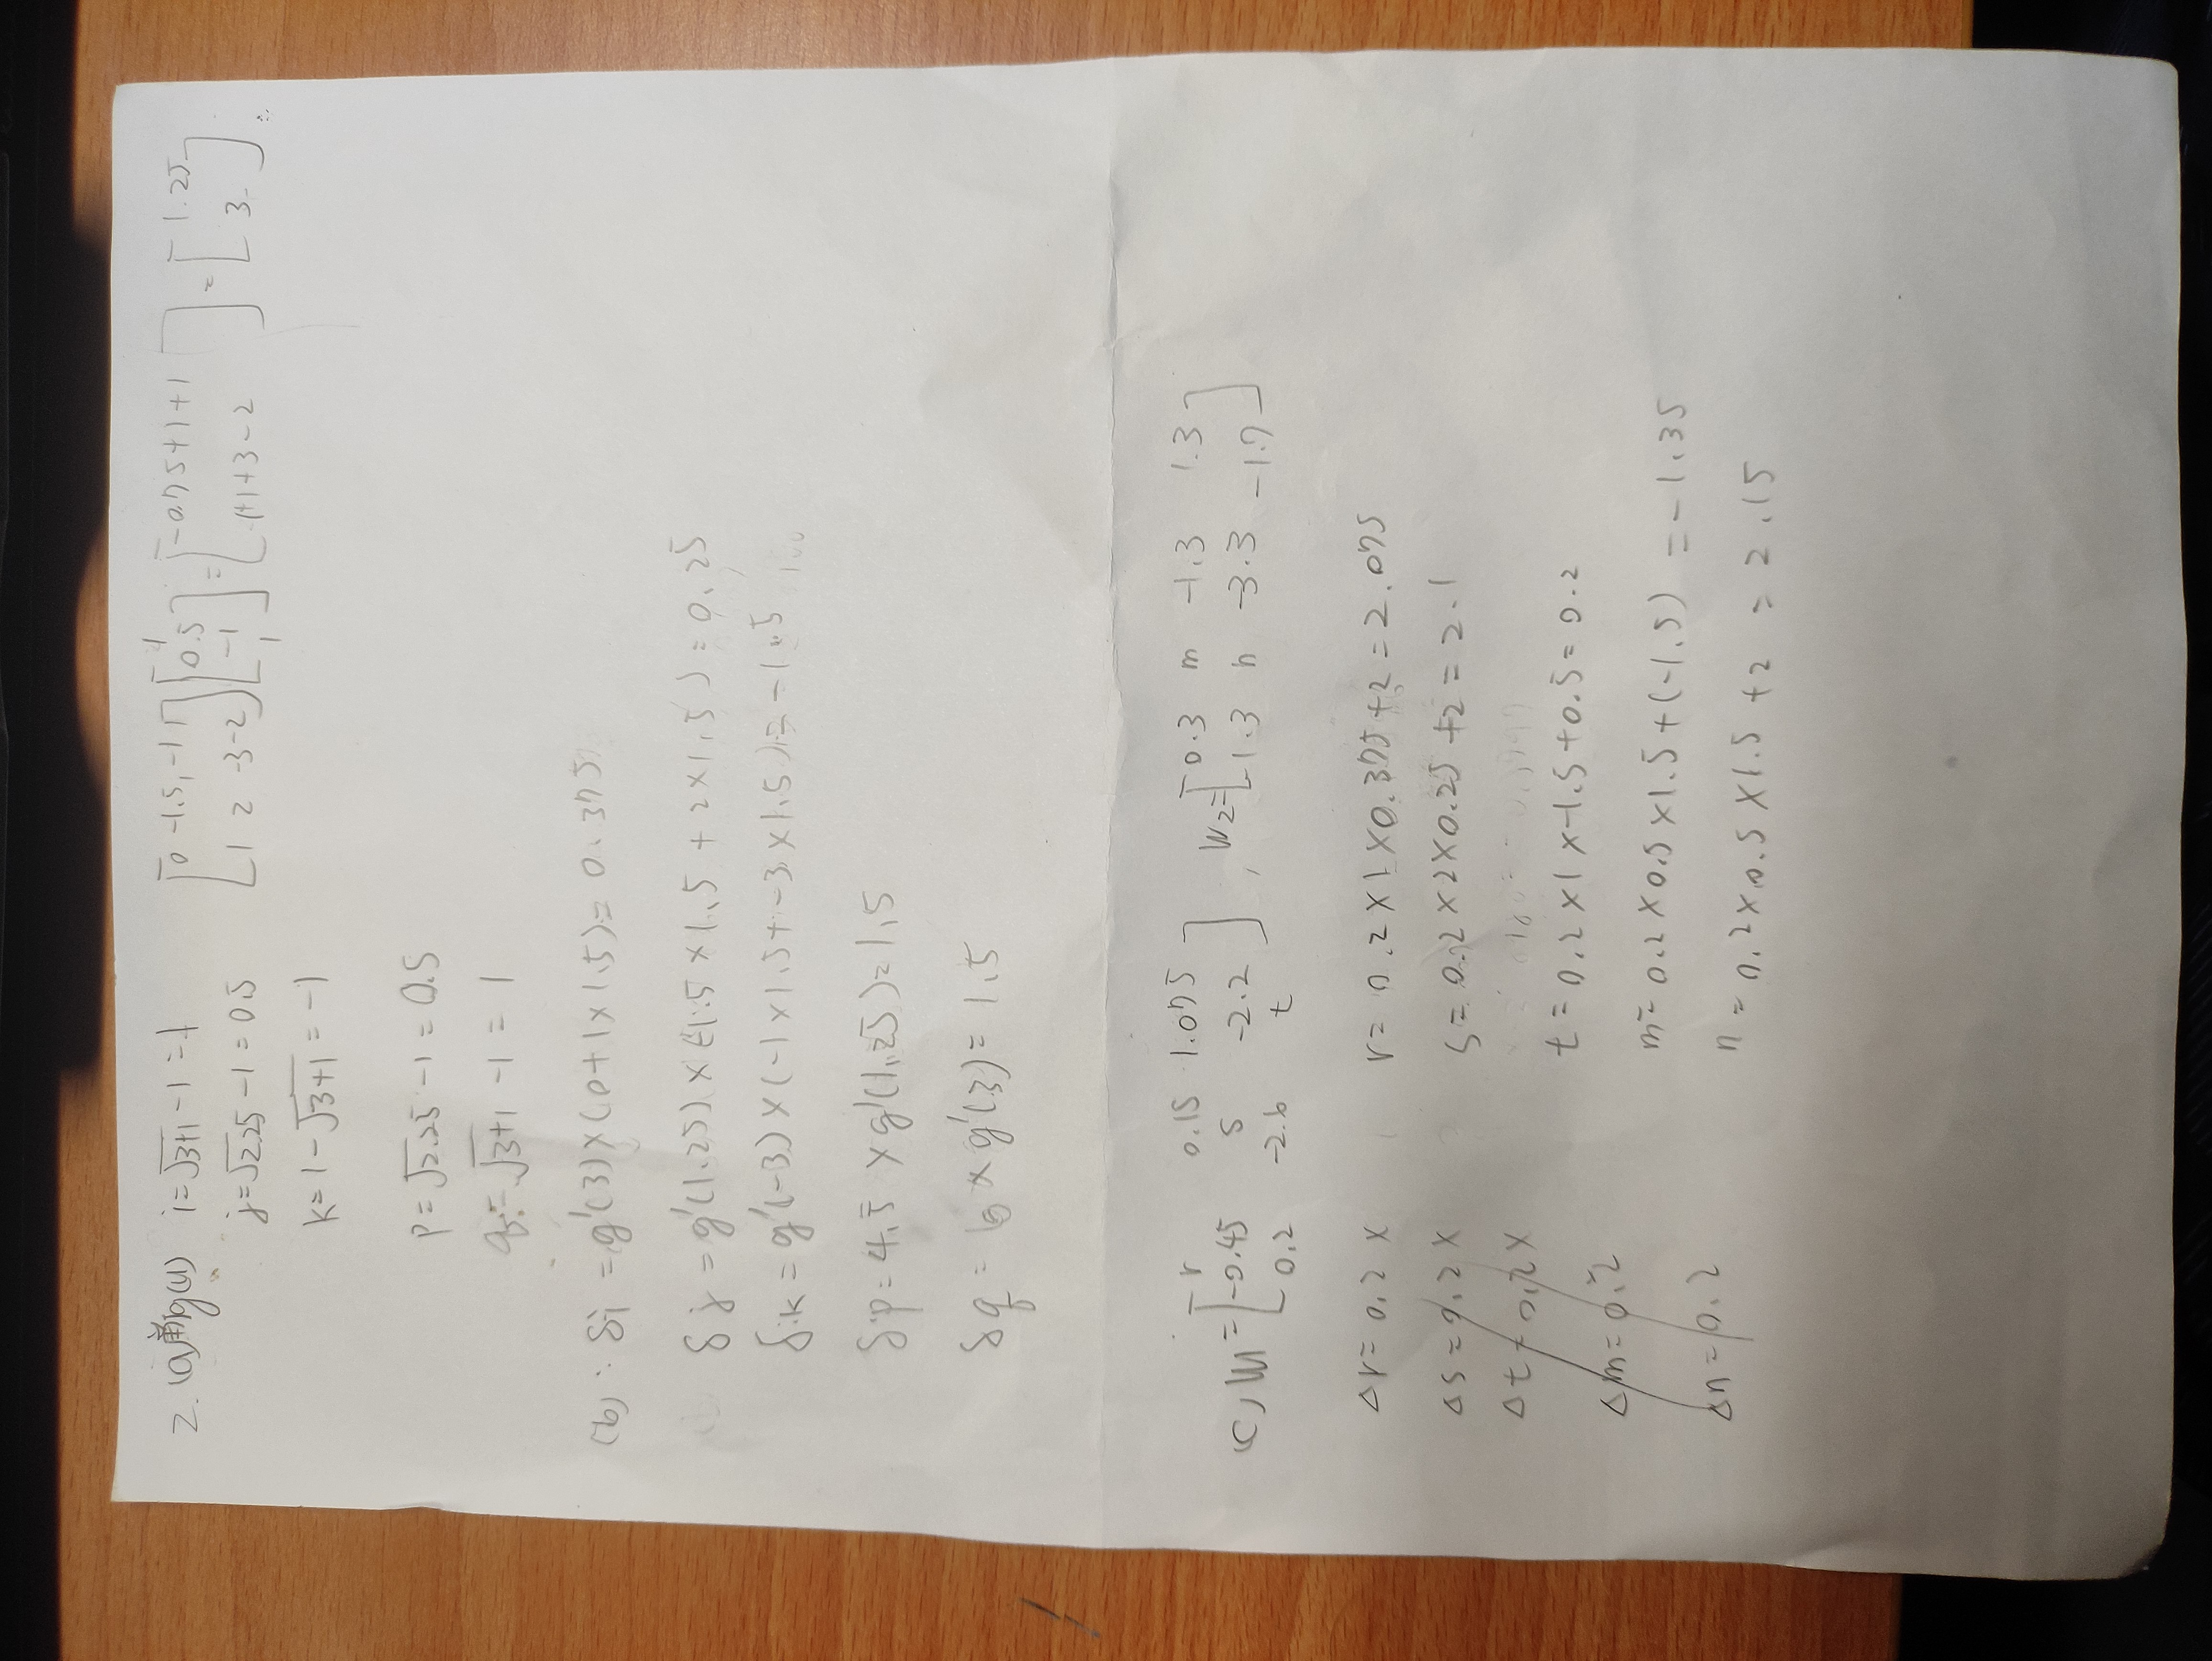 2. (a) g(u) i=√3+1 -1 = 1
j=√2.25 -1 = 0.5
k = 1-√3+1 = -1
[0 -1.5 -1 1
1 2 -3 -2] [1
0.5
-1
1] = [-0.75+1+1
1+1+3-2] = [1.25
3]
p=√2.25 -1 = 0.5
q=√3+1 -1 = 1
(b): δi = g'(3)×(0+1×1.5)= 0.375
δj = g'(1.25)×(-1.5×1.5+2×1.5)=0.25
δk = g'(-3)×(-1×1.5+-3×1.5)=-1.5
δp=4.5×g'(1.25)=1.5
δq = 6×g'(3)=1.5
(c) W1 = [r 0.15 1.075
-0.45 s -2.2
0.2 -2.6 t], W2=[0.3 m -1.3 1.3
1.3 n -3.3 -1.7]
Δr= 0.2 × r= 0.2×1×0.375+2=2.075
Δs=0.2× s=0.2×2×0.25+2=2.1
Δt=0.2× t=0.2×1×-1.5+0.5=0.2
Δm=0.2 m=0.2×0.5×1.5+(-1.5) =-1.35
Δn=0.2 n=0.2×0.5×1.5+2 = 2.15